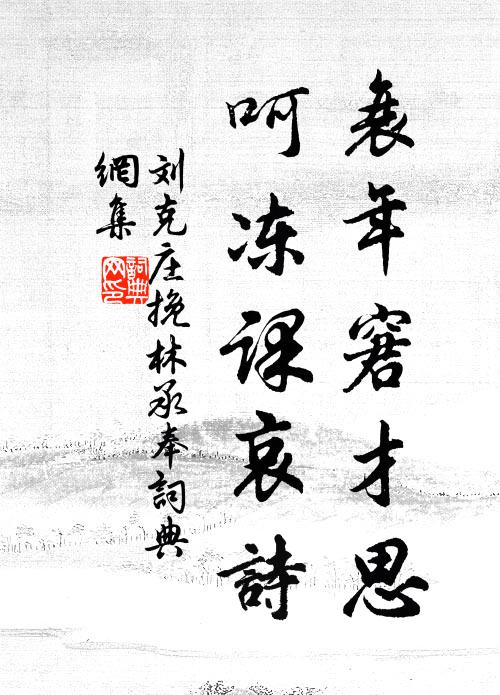 衰年窘才思
呵冻课哀詩
刘克庄挽林承奉詞典
網集
詞典
网印